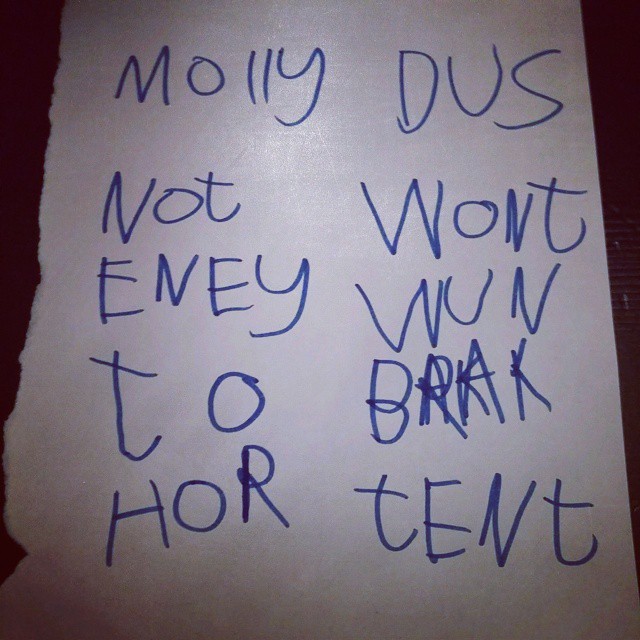 Molly DUS
Not WONt
ENEY WUN
tO BRAK
HOR tENt